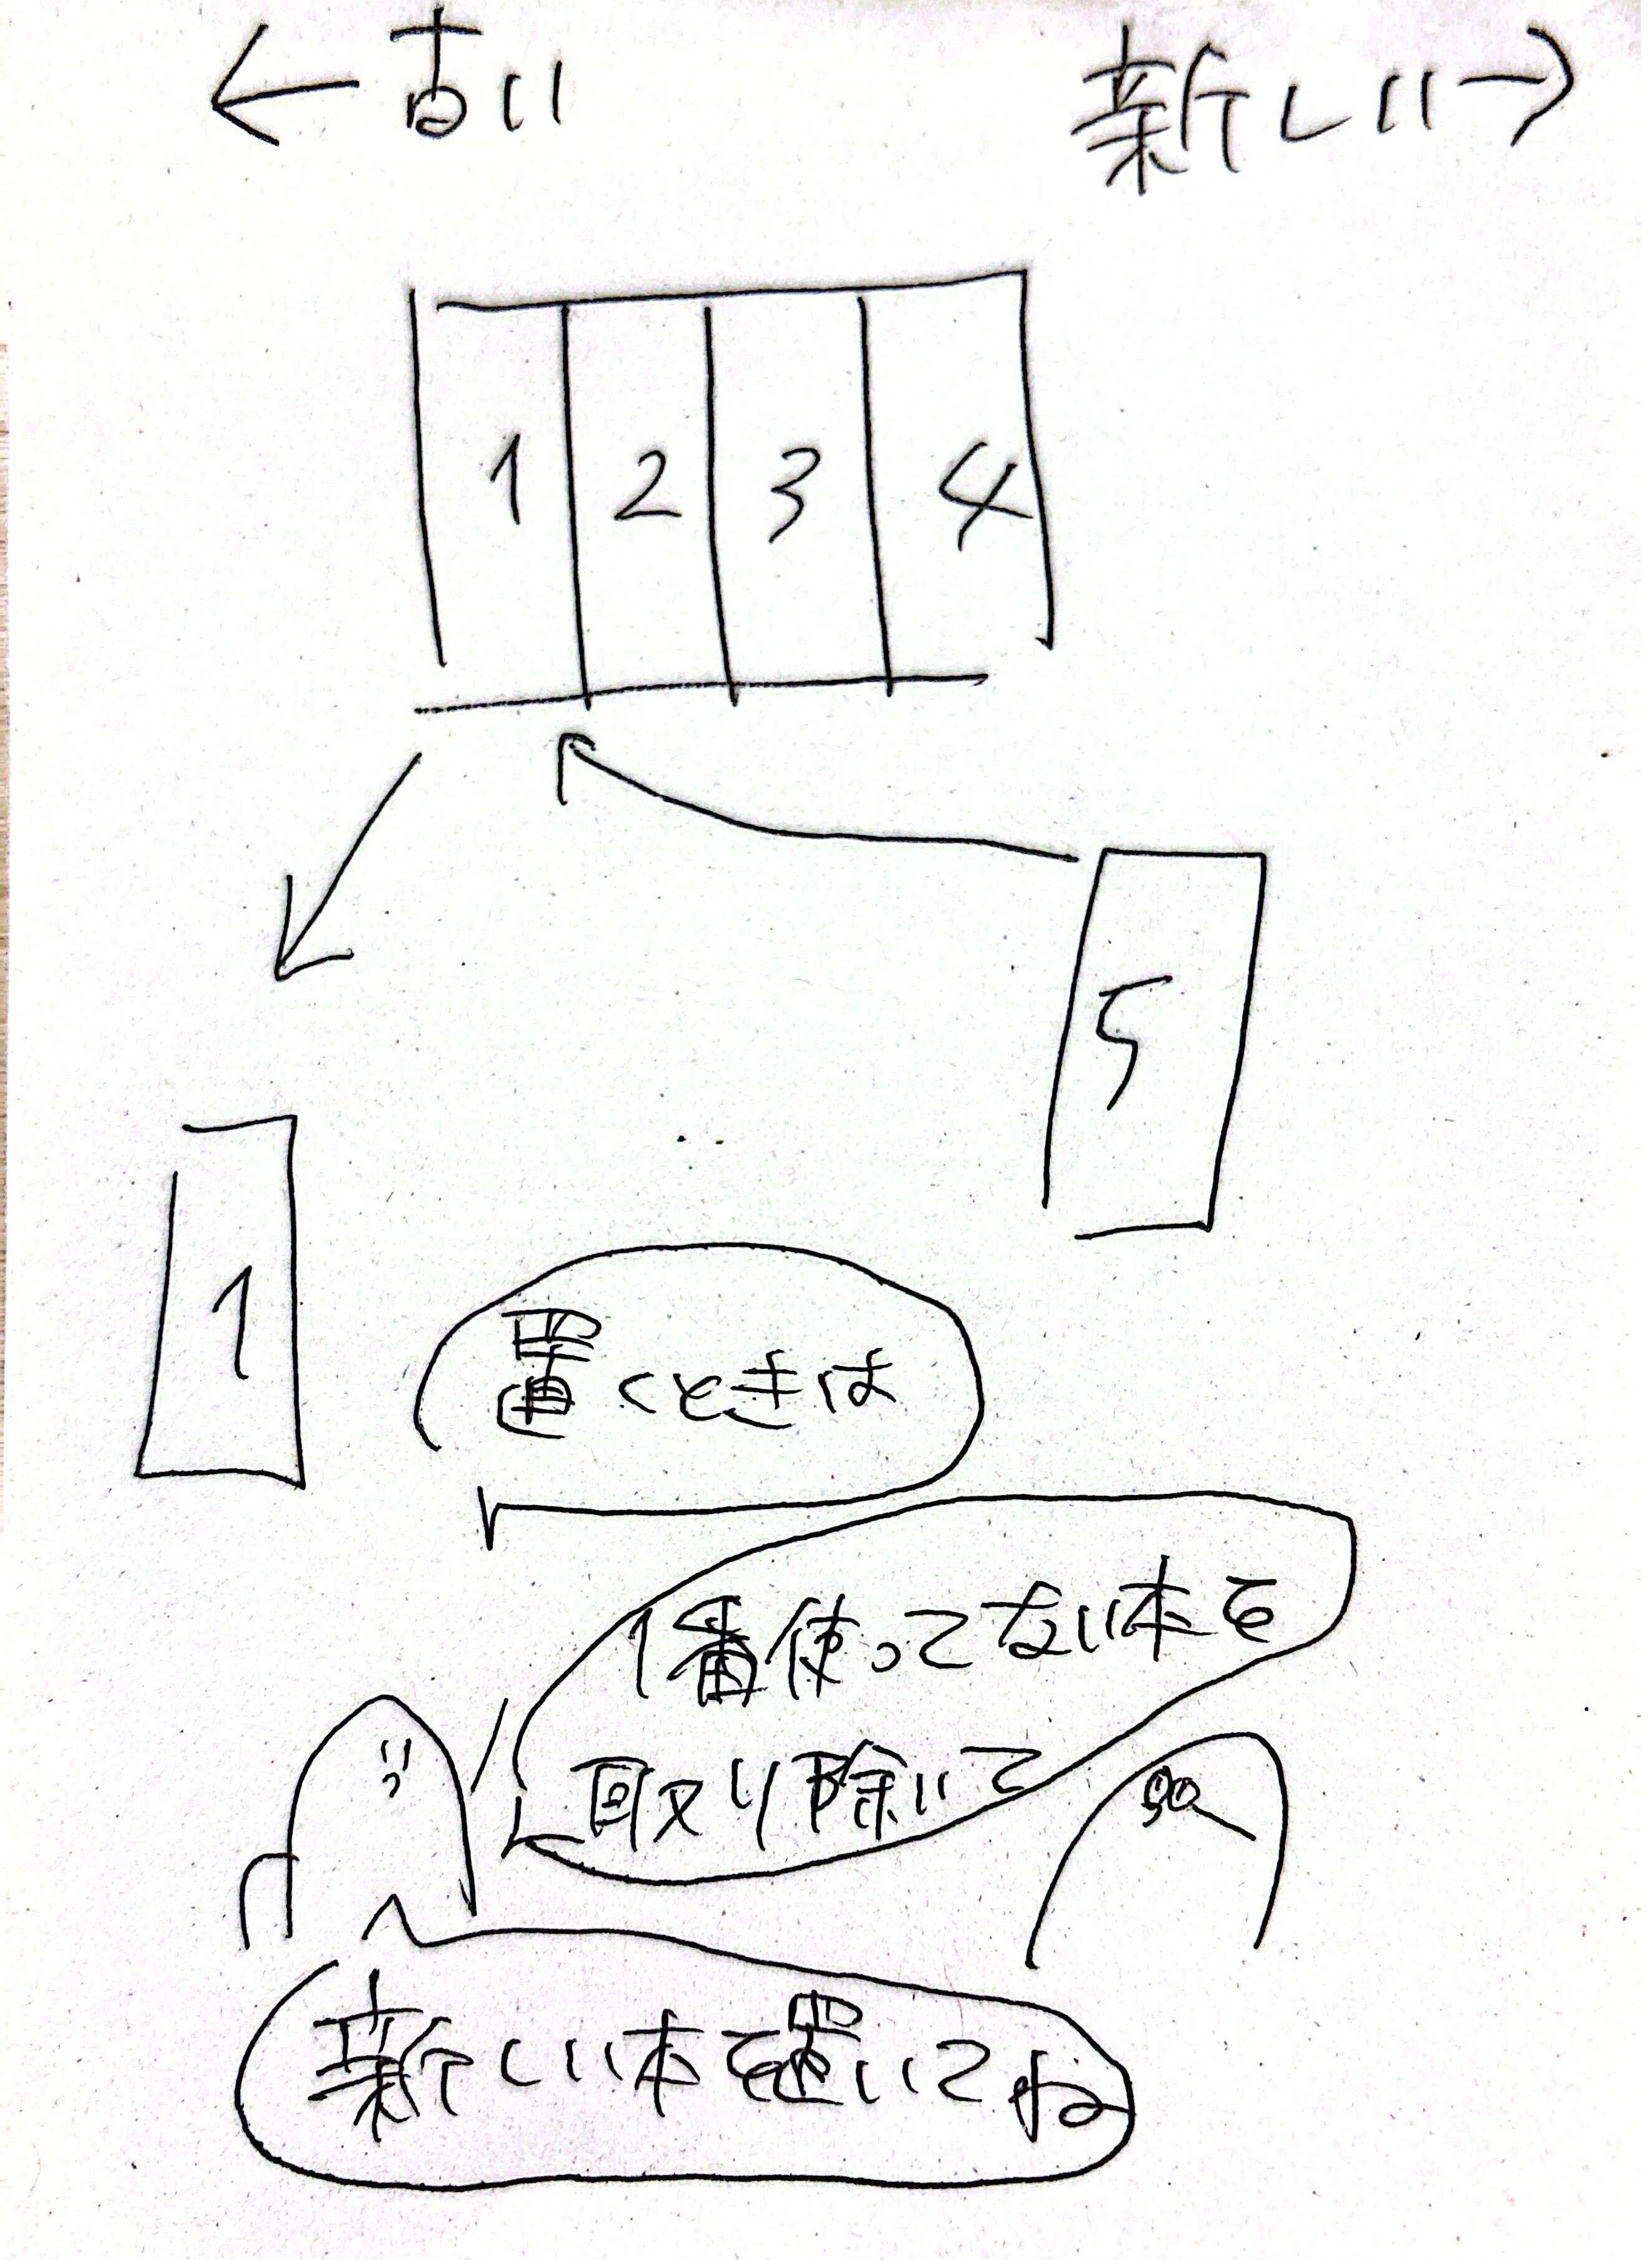 ←古い 新しい→
1 2 3 4
5
1
置くときは
1番使ってない本を
取り除いて
新しい本を置いてね